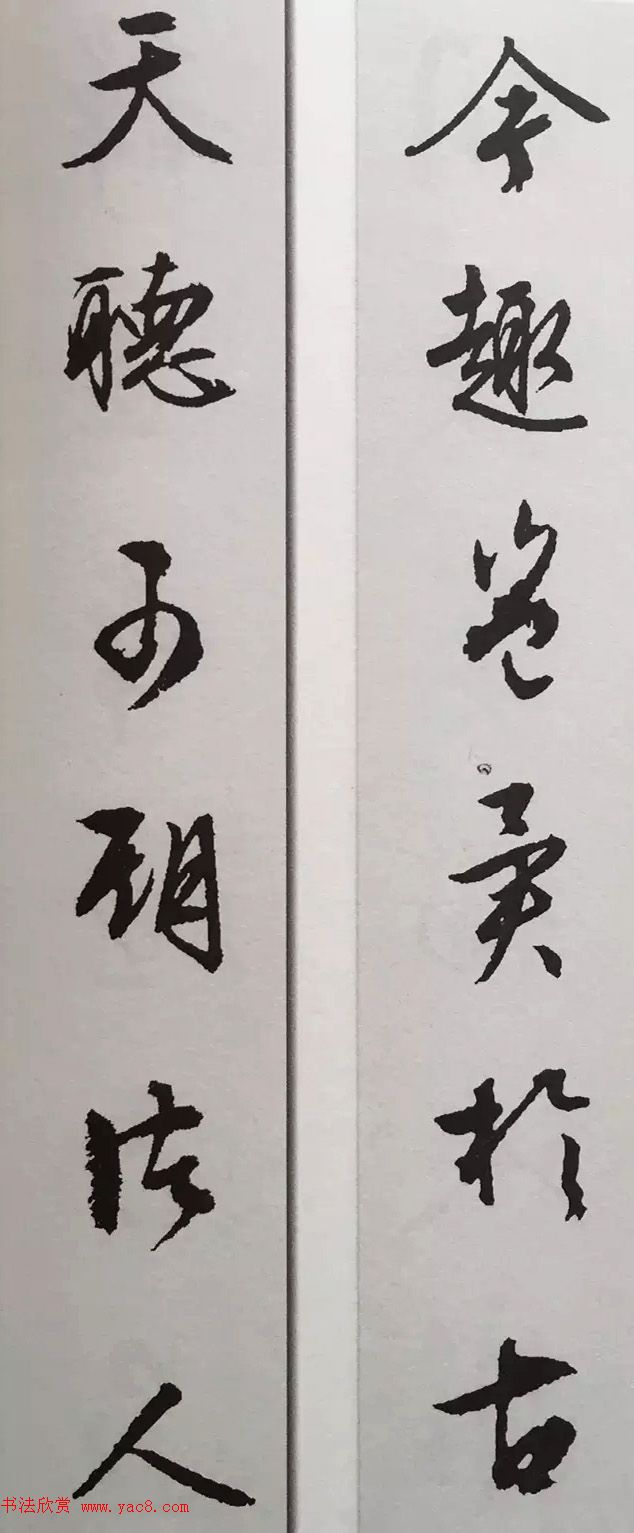 今趣豈異於古
天聽可期諸人
书法欣赏 www.yac8.com